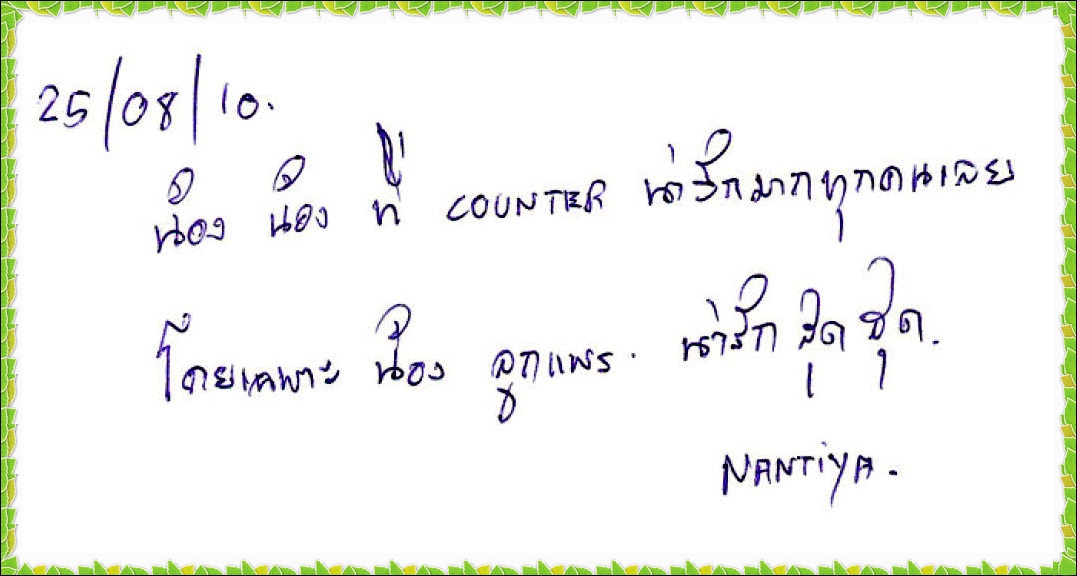 25/08/10.
น้อง น้อง ที่ COUNTER น่ารักมากทุกคนเลย
โดยเฉพาะ น้อง ลูกแพร. น่ารัก สุด สุด.
NANTIYA.